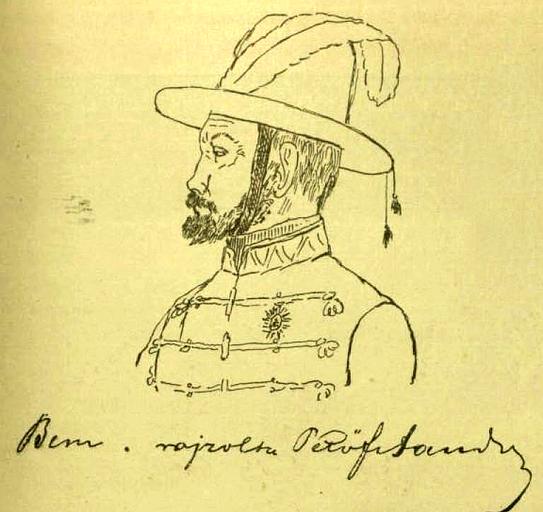 Bem. rajzolta Petőfi Sándor